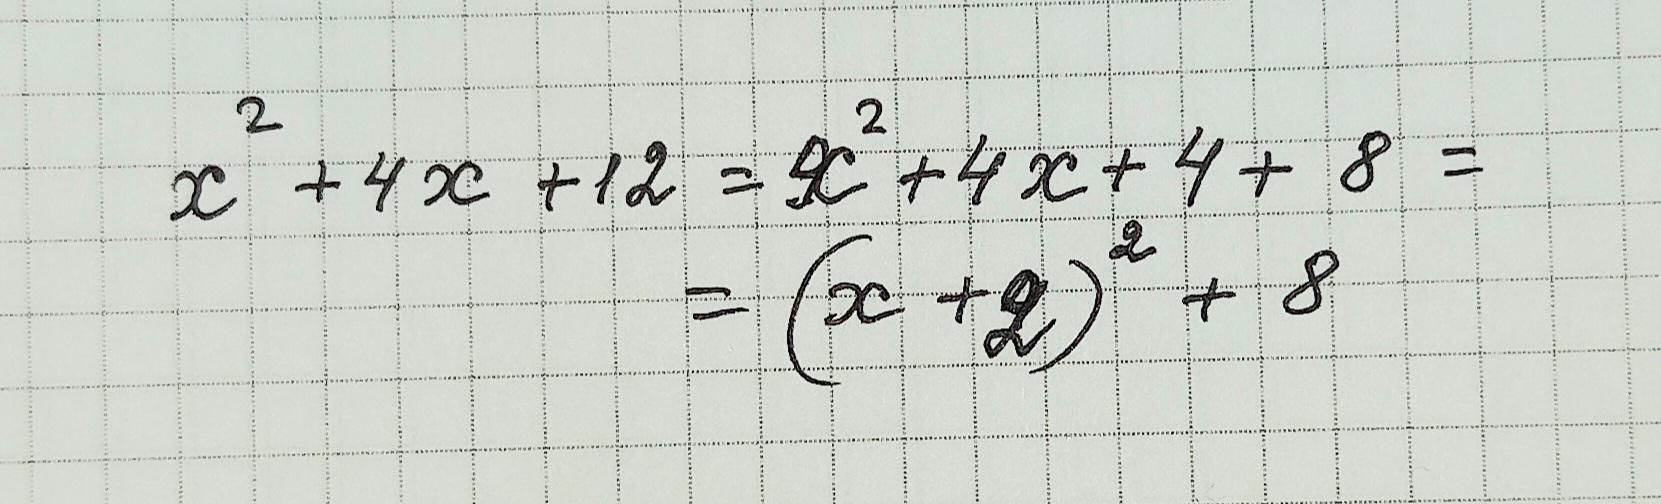 x² + 4x + 12 = x² + 4x + 4 + 8 =
= (x + 2)² + 8